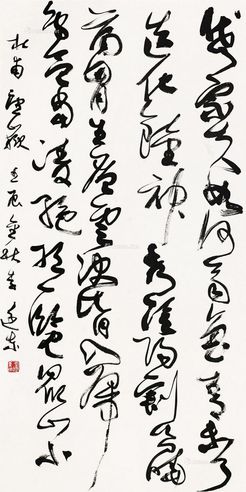 岱宗夫如何齊魯青未了
造化鍾神秀陰陽割昏曉
蕩胸生層雲決眥入歸
鳥會當凌絕頂一覽眾山小
杜甫望嶽 壬辰金秋